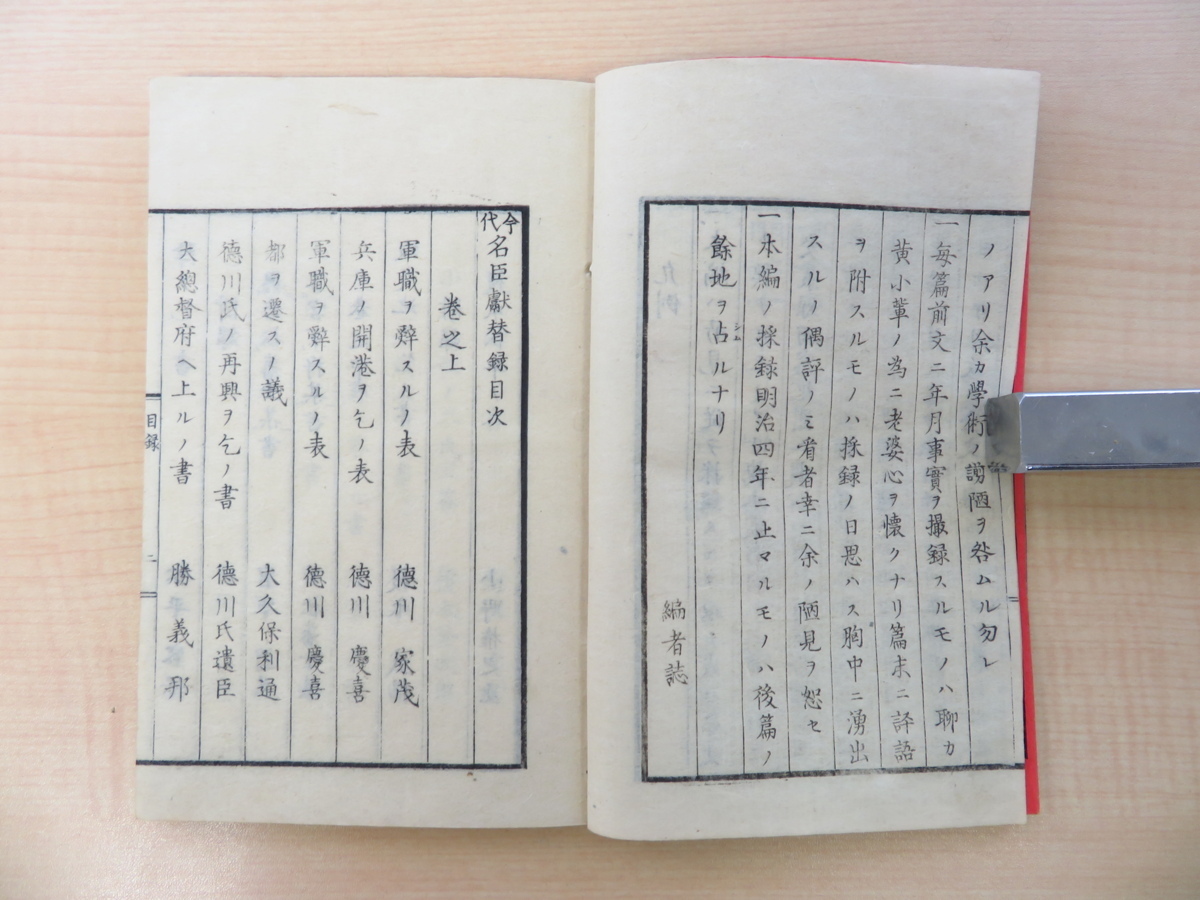 ノアリ余カ學術ノ謭陋ヲ咎ムル勿レ
一每篇前文ニ年月事實ヲ撮録スルモノハ聊カ
黄小輩ノ為ニ老婆心ヲ懷クナリ篇末ニ評語
ヲ附スルモノハ採録ノ日思ハス胸中ニ湧出
スルノ偶評ノミ看者幸ニ余ノ陋見ヲ恕セ
一本編ノ採録明治四年ニ止マルモノハ後篇ノ
餘地ヲ占シムルナリ
編者誌
今代名臣獻替録目次
卷之上
軍職ヲ辭スルノ表 德川家茂
兵庫ノ開港ヲ乞ノ表 德川慶喜
軍職ヲ辭スルノ表 德川慶喜
都ヲ遷スノ議 大久保利通
德川氏ノ再興ヲ乞ノ書 德川氏遺臣
大總督府ヘ上ルノ書 勝義邦
目録
二